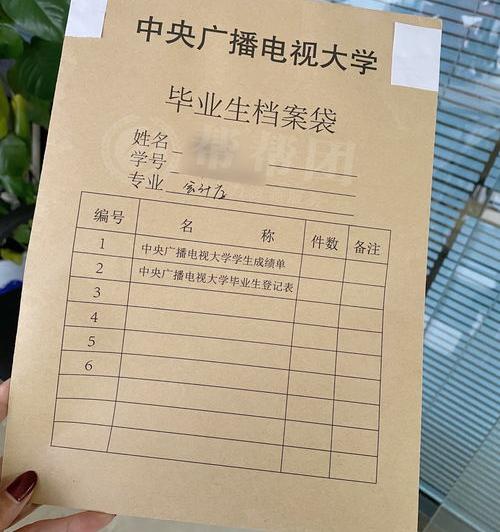 中央广播电视大学
毕业生档案袋
姓名
学号
专业 会计
编号 名 称 件数 备注
1 中央广播电视大学学生成绩单
2 中央广播电视大学毕业生登记表
3
4
5
6